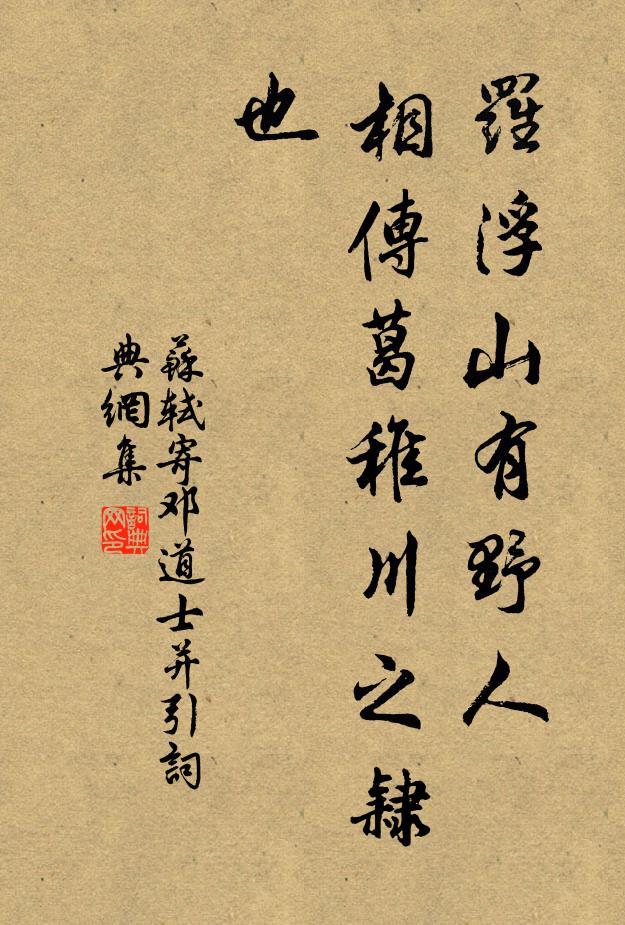 羅浮山有野人
相傳葛稚川之隸
也
蘇軾寄邓道士并引詞
典網集
詞典
网印